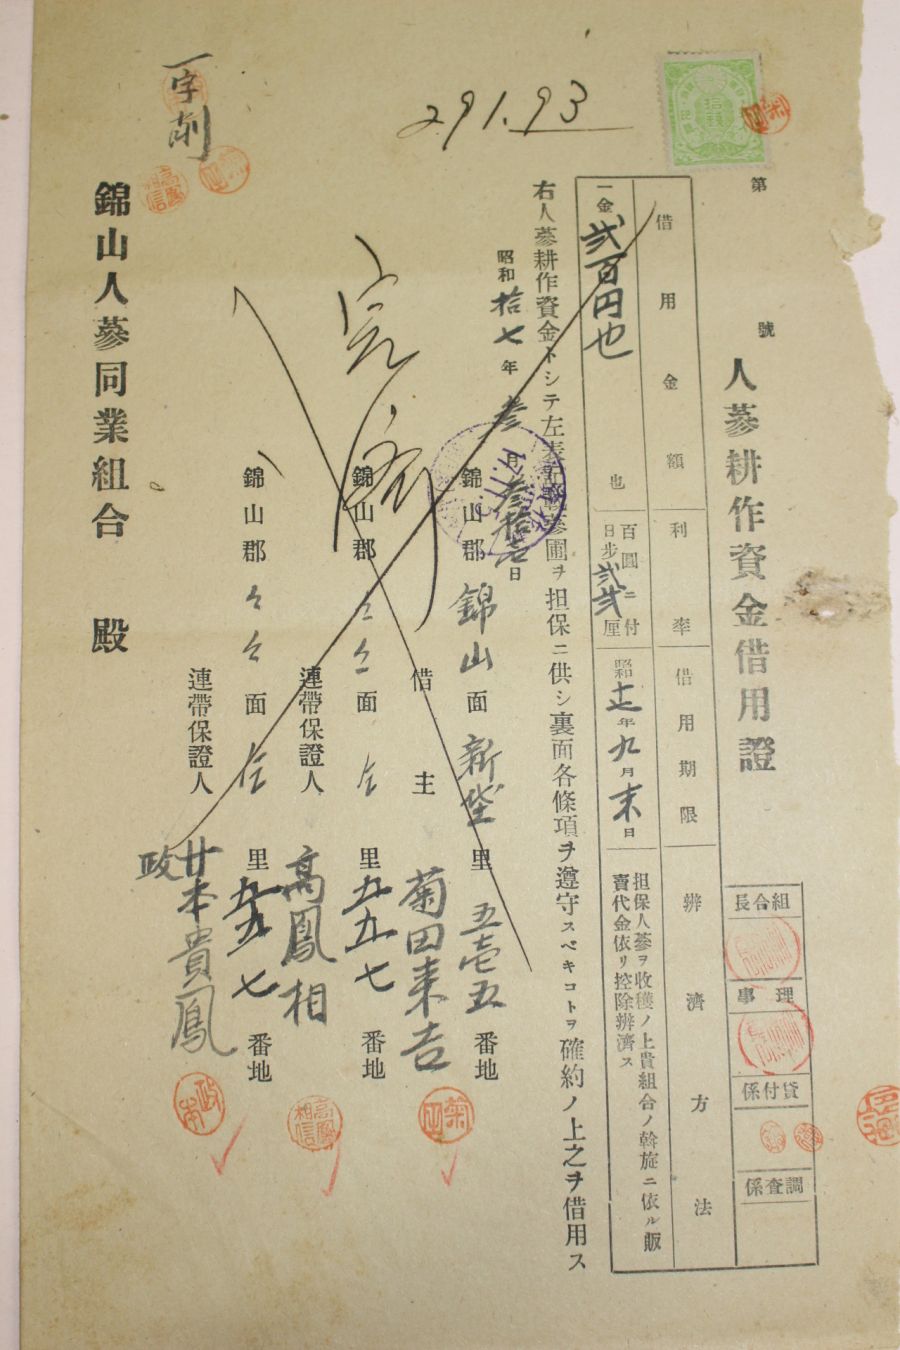 第 號
人蔘耕作資金借用證
組合長
理事
貸付係
調査係
借用金額 利率 借用期限 辨濟方法
一金弐百円也 也
百圓ニ付日步弐弐厘
昭和十七年九月末日
担保人蔘ヲ收穫ノ上貴組合ノ斡施ニ依ル販
賣代金依リ控除辨濟ス
右人蔘耕作資金トシテ左表記載蔘圃ヲ担保ニ供シ裏面各條項ヲ遵守スベキコトヲ確約ノ上之ヲ借用ス
昭和拾七年参月参拾壱日
錦山郡錦山面新垈里五壱五番地
借主 菊田来吉
錦山郡仝仝面仝里五九七番地
連帶保證人 高鳳相
錦山郡仝仝面仝里五九七番地
連帶保證人 政本貴鳳
錦山人蔘同業組合 殿
291.93
一字削
完済